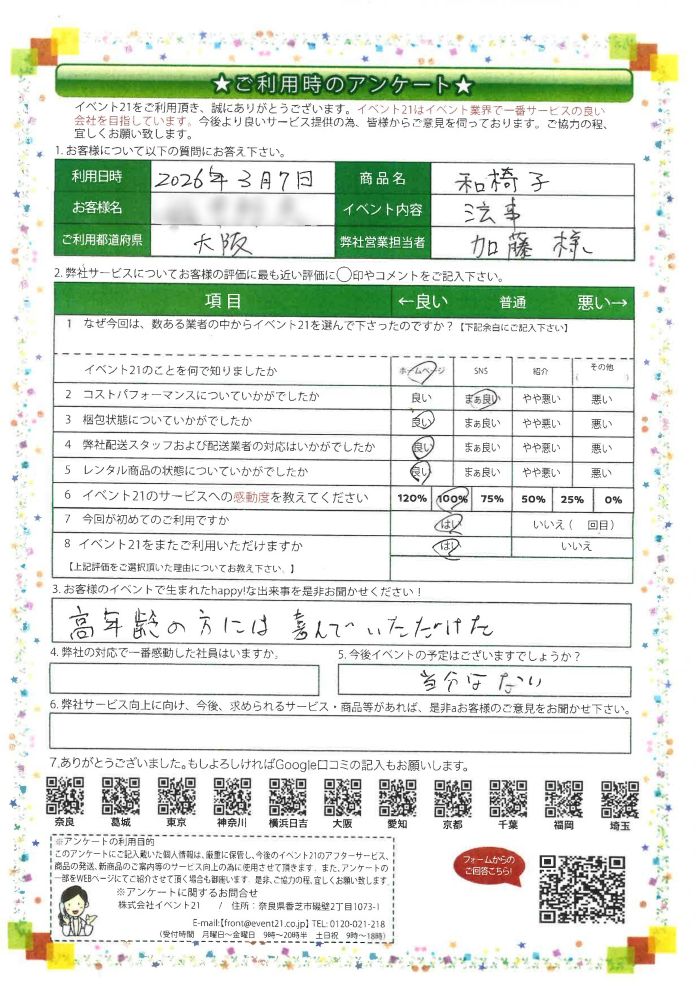 ★ご利用時のアンケート★
イベント21をご利用頂き、誠にありがとうございます。イベント21はイベント業界で一番サービスの良い
会社を目指しています。今後より良いサービス提供の為、皆様からご意見を伺っております。ご協力の程、
宜しくお願い致します。
1.お客様について以下の質問にお答え下さい。
利用日時 2026年3月7日 商品名 和椅子
お客様名 イベント内容 法事
ご利用都道府県 大阪 弊社営業担当者 加藤様
2.弊社サービスについてお客様の評価に最も近い評価に◯印やコメントをご記入下さい。
項目 ←良い 普通 悪い→
1 なぜ今回は、数ある業者の中からイベント21を選んで下さったのですか？【下記余白にご記入下さい】
イベント21のことを何で知りましたか ホームページ SNS 紹介 その他( )
2 コストパフォーマンスについていかがでしたか 良い まぁ良い やや悪い 悪い
3 梱包状態についていかがでしたか 良い まぁ良い やや悪い 悪い
4 弊社配送スタッフおよび配送業者の対応はいかがでしたか 良い まぁ良い やや悪い 悪い
5 レンタル商品の状態についていかがでしたか 良い まぁ良い やや悪い 悪い
6 イベント21のサービスへの感動度を教えてください 120% 100% 75% 50% 25% 0%
7 今回が初めてのご利用ですか はい いいえ( 回目)
8 イベント21をまたご利用いただけますか はい いいえ
【上記評価をご選択頂いた理由についてお教え下さい。】
3.お客様のイベントで生まれたhappy!な出来事を是非お聞かせください！
高年齢の方には喜んでいただけた
4.弊社の対応で一番感動した社員はいますか。 5.今後イベントの予定はございますでしょうか？
当分はない
6.弊社サービス向上に向け、今後、求められるサービス・商品等があれば、是非aお客様のご意見をお聞かせ下さい。
7.ありがとうございました。もしよろしければGoogle口コミの記入もお願いします。
奈良 葛城 東京 神奈川 横浜日吉 大阪 愛知 京都 千葉 福岡 埼玉
※アンケートの利用目的
このアンケートにご記入戴いた個人情報は、厳重に保管し、今後のイベント21のアフターサービス、
商品の発送、新商品のご案内等のサービス向上の為に使用させて頂きます。また、アンケートの
一部をWEBページにてご紹介させて頂く場合も御座います。是非、ご協力の程、宜しくお願い致します。
※アンケートに関するお問合せ
株式会社イベント21 / 住所：奈良県香芝市磯壁2丁目1073-1
E-mail:【front@event21.co.jp】 TEL: 0120-021-218
(受付時間 月曜日〜金曜日 9時〜20時半 土日祝 9時〜18時)
フォームからの
ご回答こちら!